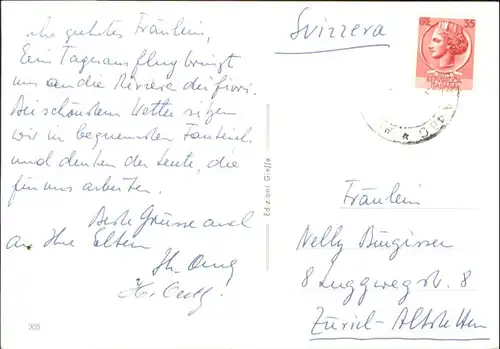 Fräulein,
Ein Tagesausflug bringt
uns an die Riviera dei fiori.
Bei schönstem Wetter sitzen
wir in bequemsten Fauteuils
und denken der Leute, die
für uns arbeiten.
Beste Grüsse auch
an Ihre Eltern
Ihr
H.
305
Edizioni Gieffe
Svizzera
LIRE 35
REPVBBLICA
ITALIANA
Fräulein
Nelly Bürgisser
8 Luggwegstr. 8
Zürich-Altstetten